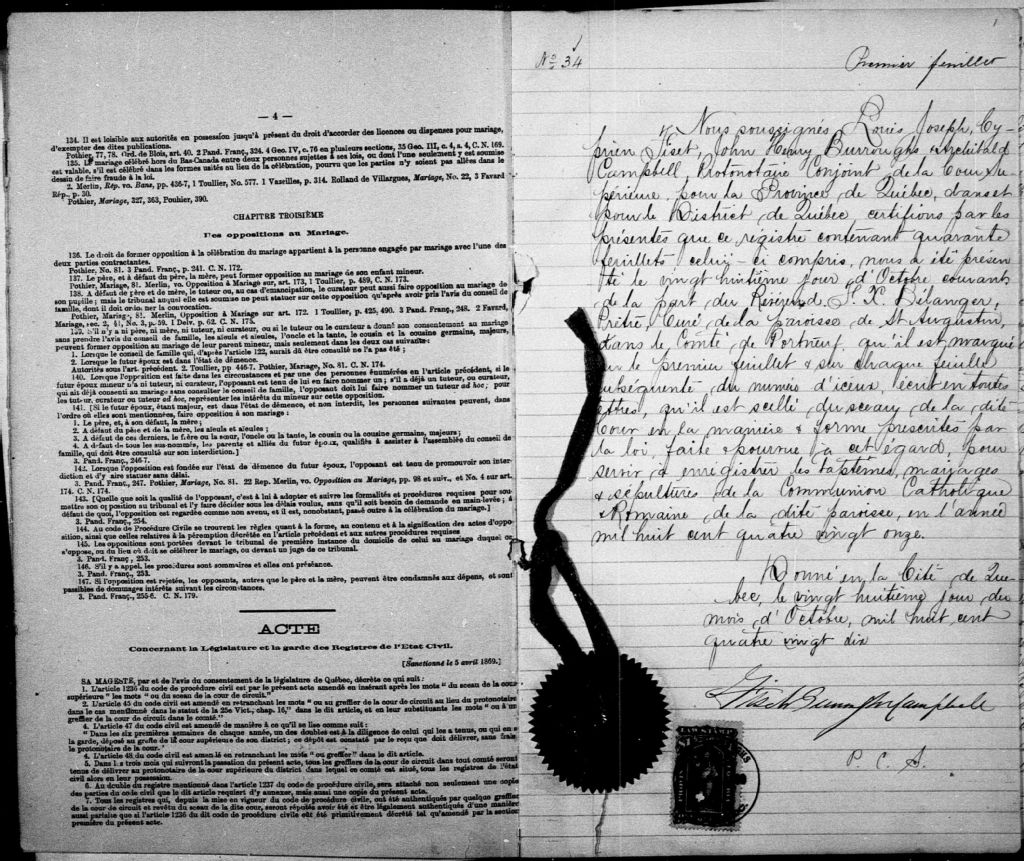 — 4 —
134. Il est loisible aux autorités en possession jusqu'à présent du droit d'accorder des licences ou dispenses pour mariage,
d'exempter des dites publications.
Pothier, 77, 78. Ord. de Blois, art. 40. 2 Pand. Franç., 324. 4 Geo. IV, c. 76 en plusieurs sections, 35 Geo. III, c. 4, s. 4, C. N. 169.
135. Le mariage célébré hors du Bas-Canada entre deux personnes sujettes à ses lois, ou dont l'une seulement y est soumise
est valable, s'il est célébré dans les formes usités au lieu de la célébration, pourvu que les parties n'y soient pas allées dans le
dessein de faire fraude à la loi.
2. Merlin, Rép. vo. Bans, pp. 436-7, 1 Toullier, No. 577. 1 Vazeilles, p. 314. Rolland de Villargues, Mariage, No. 22, 3 Favard
Rép., p. 30.
Pothier, Mariage, 327, 363, Pouhier, 390.
CHAPITRE TROISIÈME
Des oppositions au Mariage.
136. Le droit de former opposition à la célébration du mariage appartient à la personne engagée par mariage avec l'une des
deux parties contractantes.
Pothier, No. 81. 3 Pand. Franç., p. 241. C. N. 172.
137. Le père, et à défaut du père, la mère, peut former opposition au mariage de son enfant mineur.
Pothier, Mariage, 81. Merlin, vo. Opposition à Mariage sur, art. 173, 1 Toullier, p. 489, C. N. 173.
138. A défaut de père et de mère, le tuteur ou, au cas d'émancipation, le curateur peut aussi faire opposition au mariage de
son pupille; mais le tribunal auquel elle est soumise ne peut statuer sur cette opposition qu'après avoir pris l'avis du conseil de
famille, dont il doit ordonner la convocation.
Pothier, Mariage, 81. Merlin, Opposition à Mariage sur art. 172. 1 Toullier, p. 425, 490. 3 Pand. Franç., 248. 2 Favard,
Mariage, sec. 2, §1, No. 3, p. 59. 1 Delv. p. 62. C. N. 173.
139. S'il n'y a ni père, ni mère, ni tuteur, ni curateur, ou si le tuteur ou le curateur a donné son consentement au mariage
sans prendre l'avis du conseil de famille, les aïeuls et aïeules, l'oncle et la tante, le cousin et la cousine germains, majeurs,
peuvent former opposition au mariage de leur parent mineur, mais seulement dans les deux cas suivants:
1. Lorsque le conseil de famille qui, d'après l'article 122, aurait dû être consulté ne l'a pas été;
2. Lorsque le futur époux est dans l'état de démence.
Autorités sous l'art. précédent. 2 Toullier, pp 446-7. Pothier, Mariage, No. 81. C. N. 174.
140. Lorsque l'opposition est faite dans les circonstances et par une des personnes énumérées en l'article précédent, si le
futur époux mineur n'a ni tuteur, ni curateur, l'opposant est tenu de lui en faire nommer un; s'il a déjà un tuteur, ou curateur,
qui ait déjà consenti au mariage sans consulter le conseil de famille, l'opposant doit lui faire nommer un tuteur ad hoc; pour
les tuteur, curateur ou tuteur ad hoc, représenter les intérêts du mineur sur cette opposition.
141. [Si le futur époux, étant majeur, est dans l'état de démence, et non interdit, les personnes suivantes peuvent, dans
l'ordre où elles sont mentionnées, faire opposition à son mariage:
1. Le père, et, à son défaut, la mère;
2. A défaut du père et de la mère, les aïeuls et aïeules;
3. A défaut de ces derniers, le frère ou la sœur, l'oncle ou la tante, le cousin ou la cousine germains, majeurs;
4. A défaut de tous les sus-nommés, les parents et alliés du futur époux, qualifiés à assister à l'assemblée du conseil de
famille, qui doit être consulté sur son interdiction.]
3. Pand. Franç., 246-7.
142. Lorsque l'opposition est fondée sur l'état de démence du futur époux, l'opposant est tenu de promouvoir son inter-
diction et d'y faire statuer sans délai.
3. Pand. Franç., 247. Pothier, Mariage, No. 81. 22 Rep. Merlin, vo. Opposition au Mariage, pp. 98 et suiv., et No. 4 sur art.
174. C. N. 174.
143. [Quelque que soit la qualité de l'opposant, c'est à lui à adopter et suivre les formalités et procédures requises pour sou-
mettre son opposition au tribunal et l'y faire décider sous les délais voulus, sans qu'il soit besoin de demande en main-levée; à
défaut de quoi, l'opposition est regardée comme non avenu, et il est, nonobstant, passé outre à la célébration du mariage.]
3. Pand. Franç., 254.
144. Au code de Procédure Civile se trouvent les règles quant à la forme, au contenu et à la signification des actes d'oppo-
sition, ainsi que celles relatives à la péremption décrétée en l'article précédent et aux autres procédures requises
145. Les oppositions sont portées devant le tribunal de première instance du domicile de celui au mariage duquel on
s'oppose, ou du lieu où doit se célébrer le mariage, ou devant un juge de ce tribunal.
3. Pand. Franç., 253.
146. S'il y a appel, les procédures sont sommaires et elles ont préséance.
3. Pand. Franç., 253.
147. Si l'opposition est rejetée, les opposants, autres que le père et la mère, peuvent être condamnés aux dépens, et sont
passibles de dommages intérêts suivant les circonstances.
3. Pand. Franç., 255-6. C. N. 179.
ACTE
Concernant la Législature et la garde des Registres de l'Etat Civil.
[Sanctionné le 5 avril 1869.]
SA MAGESTÉ, par et de l'avis du consentement de la législature de Québec, décrète ce qui suit:
1. L'article 1236 du code de procédure civile est par le présent acte amendé en insérant après les mots "du sceau de la cour
supérieure" les mots "ou du sceau de la cour de circuit."
2. L'article 45 du code civil est amendé en retranchant les mots "ou au greffier de la cour de circuit au lieu du protonotaire
dans le cas mentionné dans le statut de la 25e Vict., chap. 16," dans le dit article, et en leur substituants les mots "ou à un
greffier de la cour de circuit dans le comté."
4. L'article 47 du code civil est amendé de manière à ce qu'il se lise comme suit:
"Dans les six premières semaines de chaque année, un des doubles est à la diligence de celui qui les a tenus, ou qui en a
la garde, déposé au greffe de la cour supérieure de son district; ce dépôt est constaté par le reçu que doit délivrer, sans frais,
le protonotaire de la cour."
4. L'article 48 du code civil est amendé en retranchant les mots "ou greffier" dans le dit article.
5. Dans les trois mois qui suivront la passation du présent acte, tous les greffiers de la cour de circuit dans tout comté seront
tenus de délivrer au protonotaire de la cour supérieure du district dans lequel ce comté est situé, tous les registres de l'état
civil alors en leur possession.
6. Au double du registre mentionné dans l'article 1237 du code de procédure civile, sera attaché non seulement une copie
des parties du code civil que le dit article requiert d'y annexer, mais aussi une copie du présent acte.
7. Tous les registres qui, depuis la mise en vigueur du code de procédure civile, ont été authentiqués par quelque greffier
de la cour de circuit et revêtu du sceau de la dite cour, seront réputés avoir été et être légalement authentiqués d'une manière
aussi parfaite que si l'article 1236 du dit code de procédure civile eût été primitivement décrété tel qu'amendé par la section
première du présent acte.
1
No 34
Premier feuillet
Nous soussignés Louis Joseph, Cy-
prien Fiset, John Henry Burroughs & Archibald
Campbell, Protonotaire Conjoint de la Cour Su-
périeure, pour la Province de Québec, dans et
pour le District de Québec, certifions par les
présentes que ce registre contenant quarante
feuillets celui-ci compris, nous a été présen-
té le vingt huitième jour d'Octobre courant
de la part du Révérend J. X. Bélanger,
Prêtre, Curé de la paroisse de St Augustin,
dans le Comté de Portneuf, qu'il est marqué
sur le premier feuillet & sur chaque feuille
subséquente du numéro d'iceux, écrit en toutes
lettres, qu'il est scellé du sceau de la dite
Cour en la manière & forme prescrites par
la loi, faite & pourvue à cet égard, pour
servir à enregistrer les baptêmes, mariages
& sépultures de la Communion Catholique
& Romaine de la dite paroisse, en l'année
mil huit cent quatre vingt onze.
Donné en la Cité de Qué-
bec, le vingt huitième jour du
mois d'Octobre, mil huit cent
quatre vingt dix
Fiset Burroughs Campbell
P. C. S.
LAW STAMP